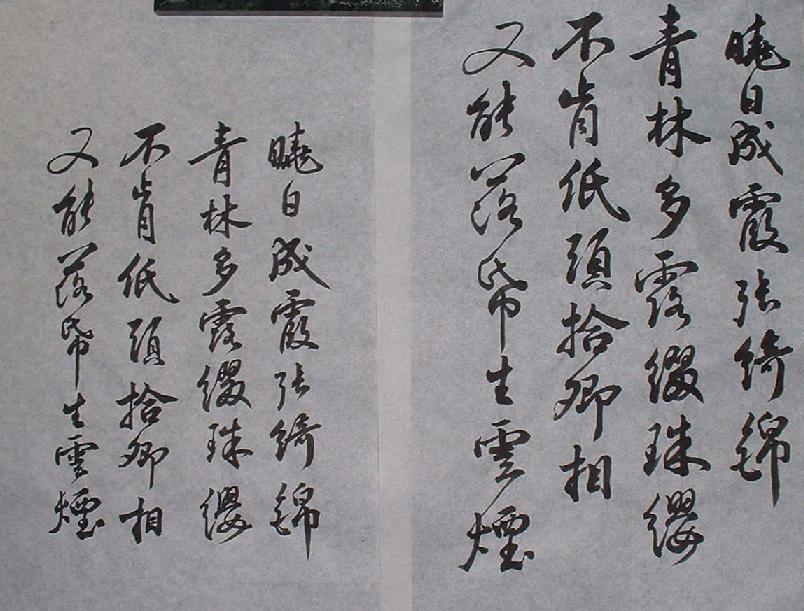 曉日成霞張綺錦
青林多露綴珠纓
不肯低頭拾卿相
又能落帋生雲煙
曉日成霞張綺錦
青林多露綴珠纓
不肯低頭拾卿相
又能落帋生雲煙